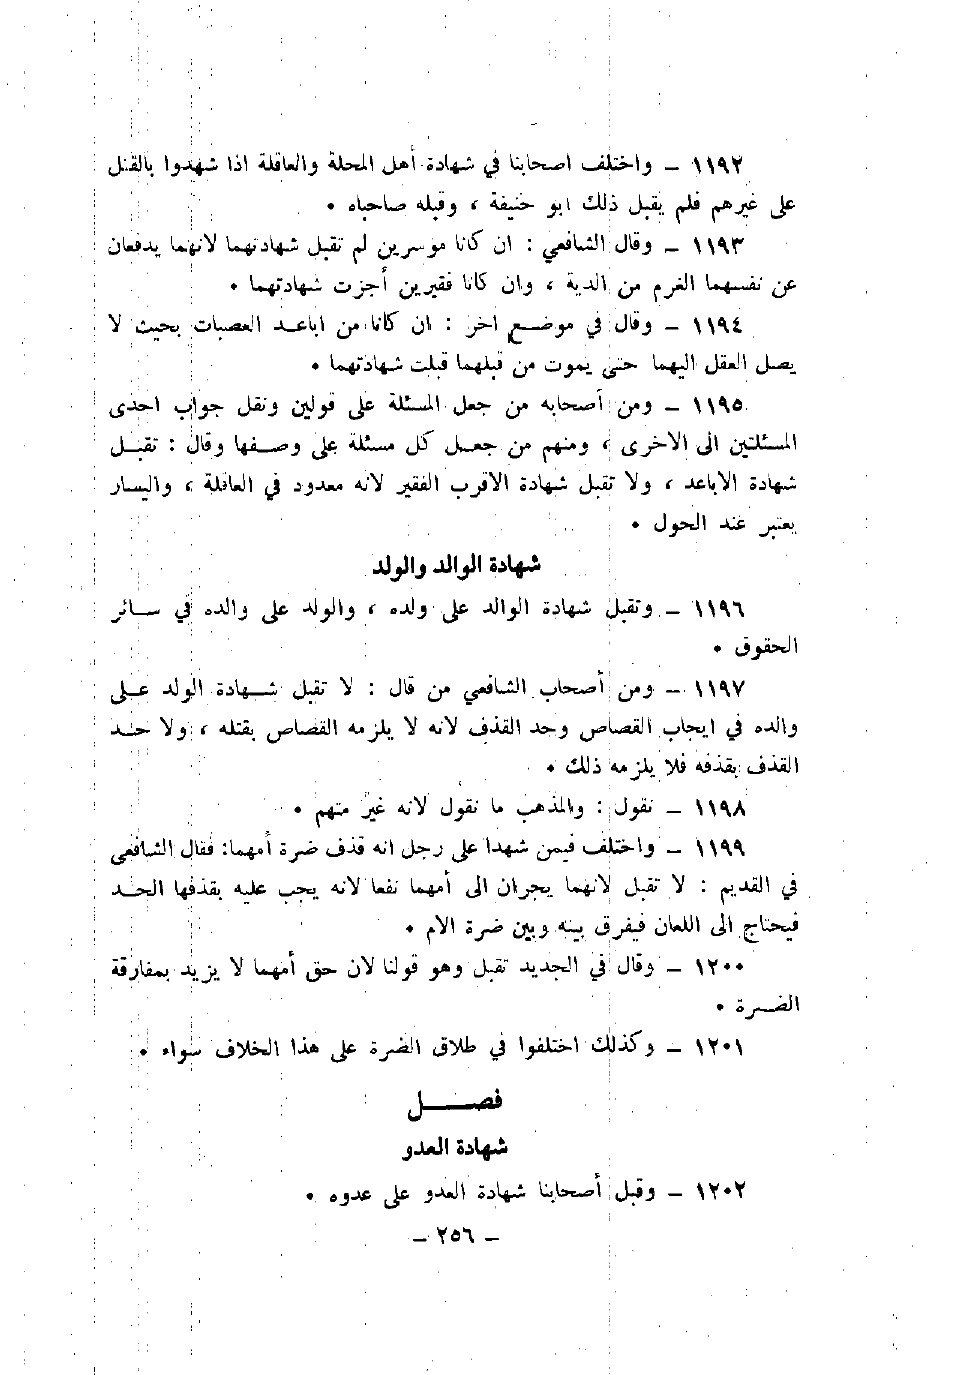 ١١٩٢ – واختلف اصحابنا في شهادة أهل المحلة والعاقلة اذا شهدوا بالقتل
على غيرهم فلم يقبل ذلك ابو حنيفة ، وقبله صاحباه .
١١٩٣ – وقال الشافعي : ان كانا موسرين لم تقبل شهادتهما لانهما يدفعان
عن نفسهما الغرم من الدية ، وان كانا فقيرين أجزت شهادتهما .
١١٩٤ – وقال في موضع اخر : ان كانا من اباعد العصبات بحيث لا
يصل العقل اليهما حتى يموت من قبلهما قبلت شهادتهما .
١١٩٥ – ومن أصحابه من جعل المسئلة على قولين ونقل جواب احدى
المسئلتين الى الاخرى ، ومنهم من جعل كل مسئلة على وصفها وقال : تقبل
شهادة الاباعد ، ولا تقبل شهادة الاقرب الفقير لانه معدود في العاقلة ، واليسار
يعتبر عند الحول .
شهادة الوالد والولد
١١٩٦ – وتقبل شهادة الوالد على ولده ، والولد على والده في سائر
الحقوق .
١١٩٧ – ومن أصحاب الشافعي من قال : لا تقبل شهادة الولد على
والده في ايجاب القصاص وحد القذف لانه لا يلزمه القصاص بقتله ، ولا حد
القذف بقذفه فلا يلزمه ذلك .
١١٩٨ – نقول : والمذهب ما نقول لانه غير متهم .
١١٩٩ – واختلف فيمن شهدا على رجل انه قذف ضرة أمهما: فقال الشافعي
في القديم : لا تقبل لانهما يجران الى أمهما نفعا لانه يجب عليه بقذفها الحد
فيحتاج الى اللعان فيفرق بينه وبين ضرة الام .
١٢٠٠ – وقال في الجديد تقبل وهو قولنا لان حق أمهما لا يزيد بمفارقة
الضرة .
١٢٠١ – وكذلك اختلفوا في طلاق الضرة على هذا الخلاف سواء .
فصل
شهادة العدو
١٢٠٢ – وقبل أصحابنا شهادة العدو على عدوه .
– ٢٥٦ –